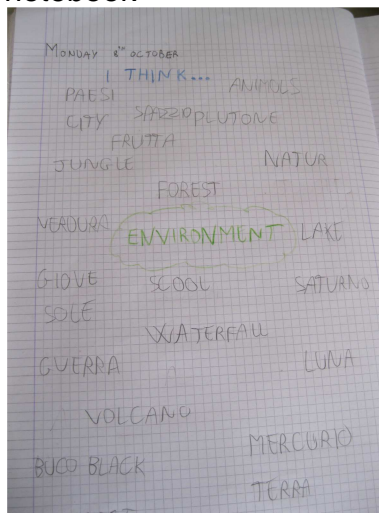 MONDAY 8TH OCTOBER
I THINK...
PAESI ANIMOLS
CITY SPAZZIO PLUTONE
FRUTTA
JUNGLE NATUR
FOREST
VERDURA ENVIRONMENT LAKE
GIOVE SCOOL SATURNO
SOLE
WATERFALL
GUERRA LUNA
VOLCANO
MERCURIO
BUCO BLACK
TERRA